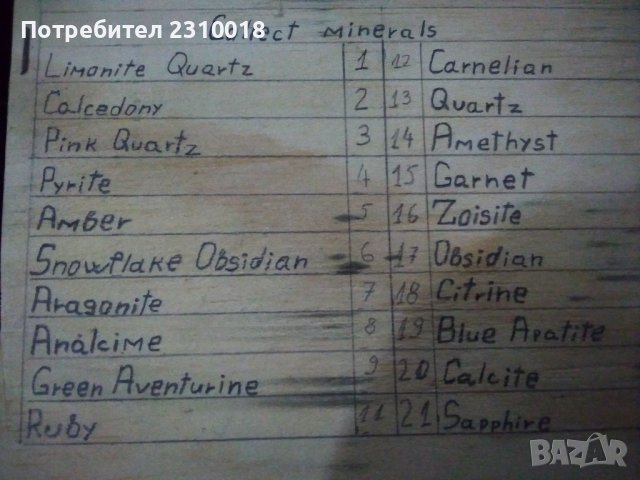 Потребител 2310018
Collect minerals
Limonite Quartz 1 12 Carnelian
Calcedony 2 13 Quartz
Pink Quartz 3 14 Amethyst
Pyrite 4 15 Garnet
Amber 5 16 Zoisite
Snowflake Obsidian 6 17 Obsidian
Aragonite 7 18 Citrine
Analcime 8 19 Blue Apatite
Green Aventurine 9 20 Calcite
Ruby 11 21 Sapphire
BAZAR